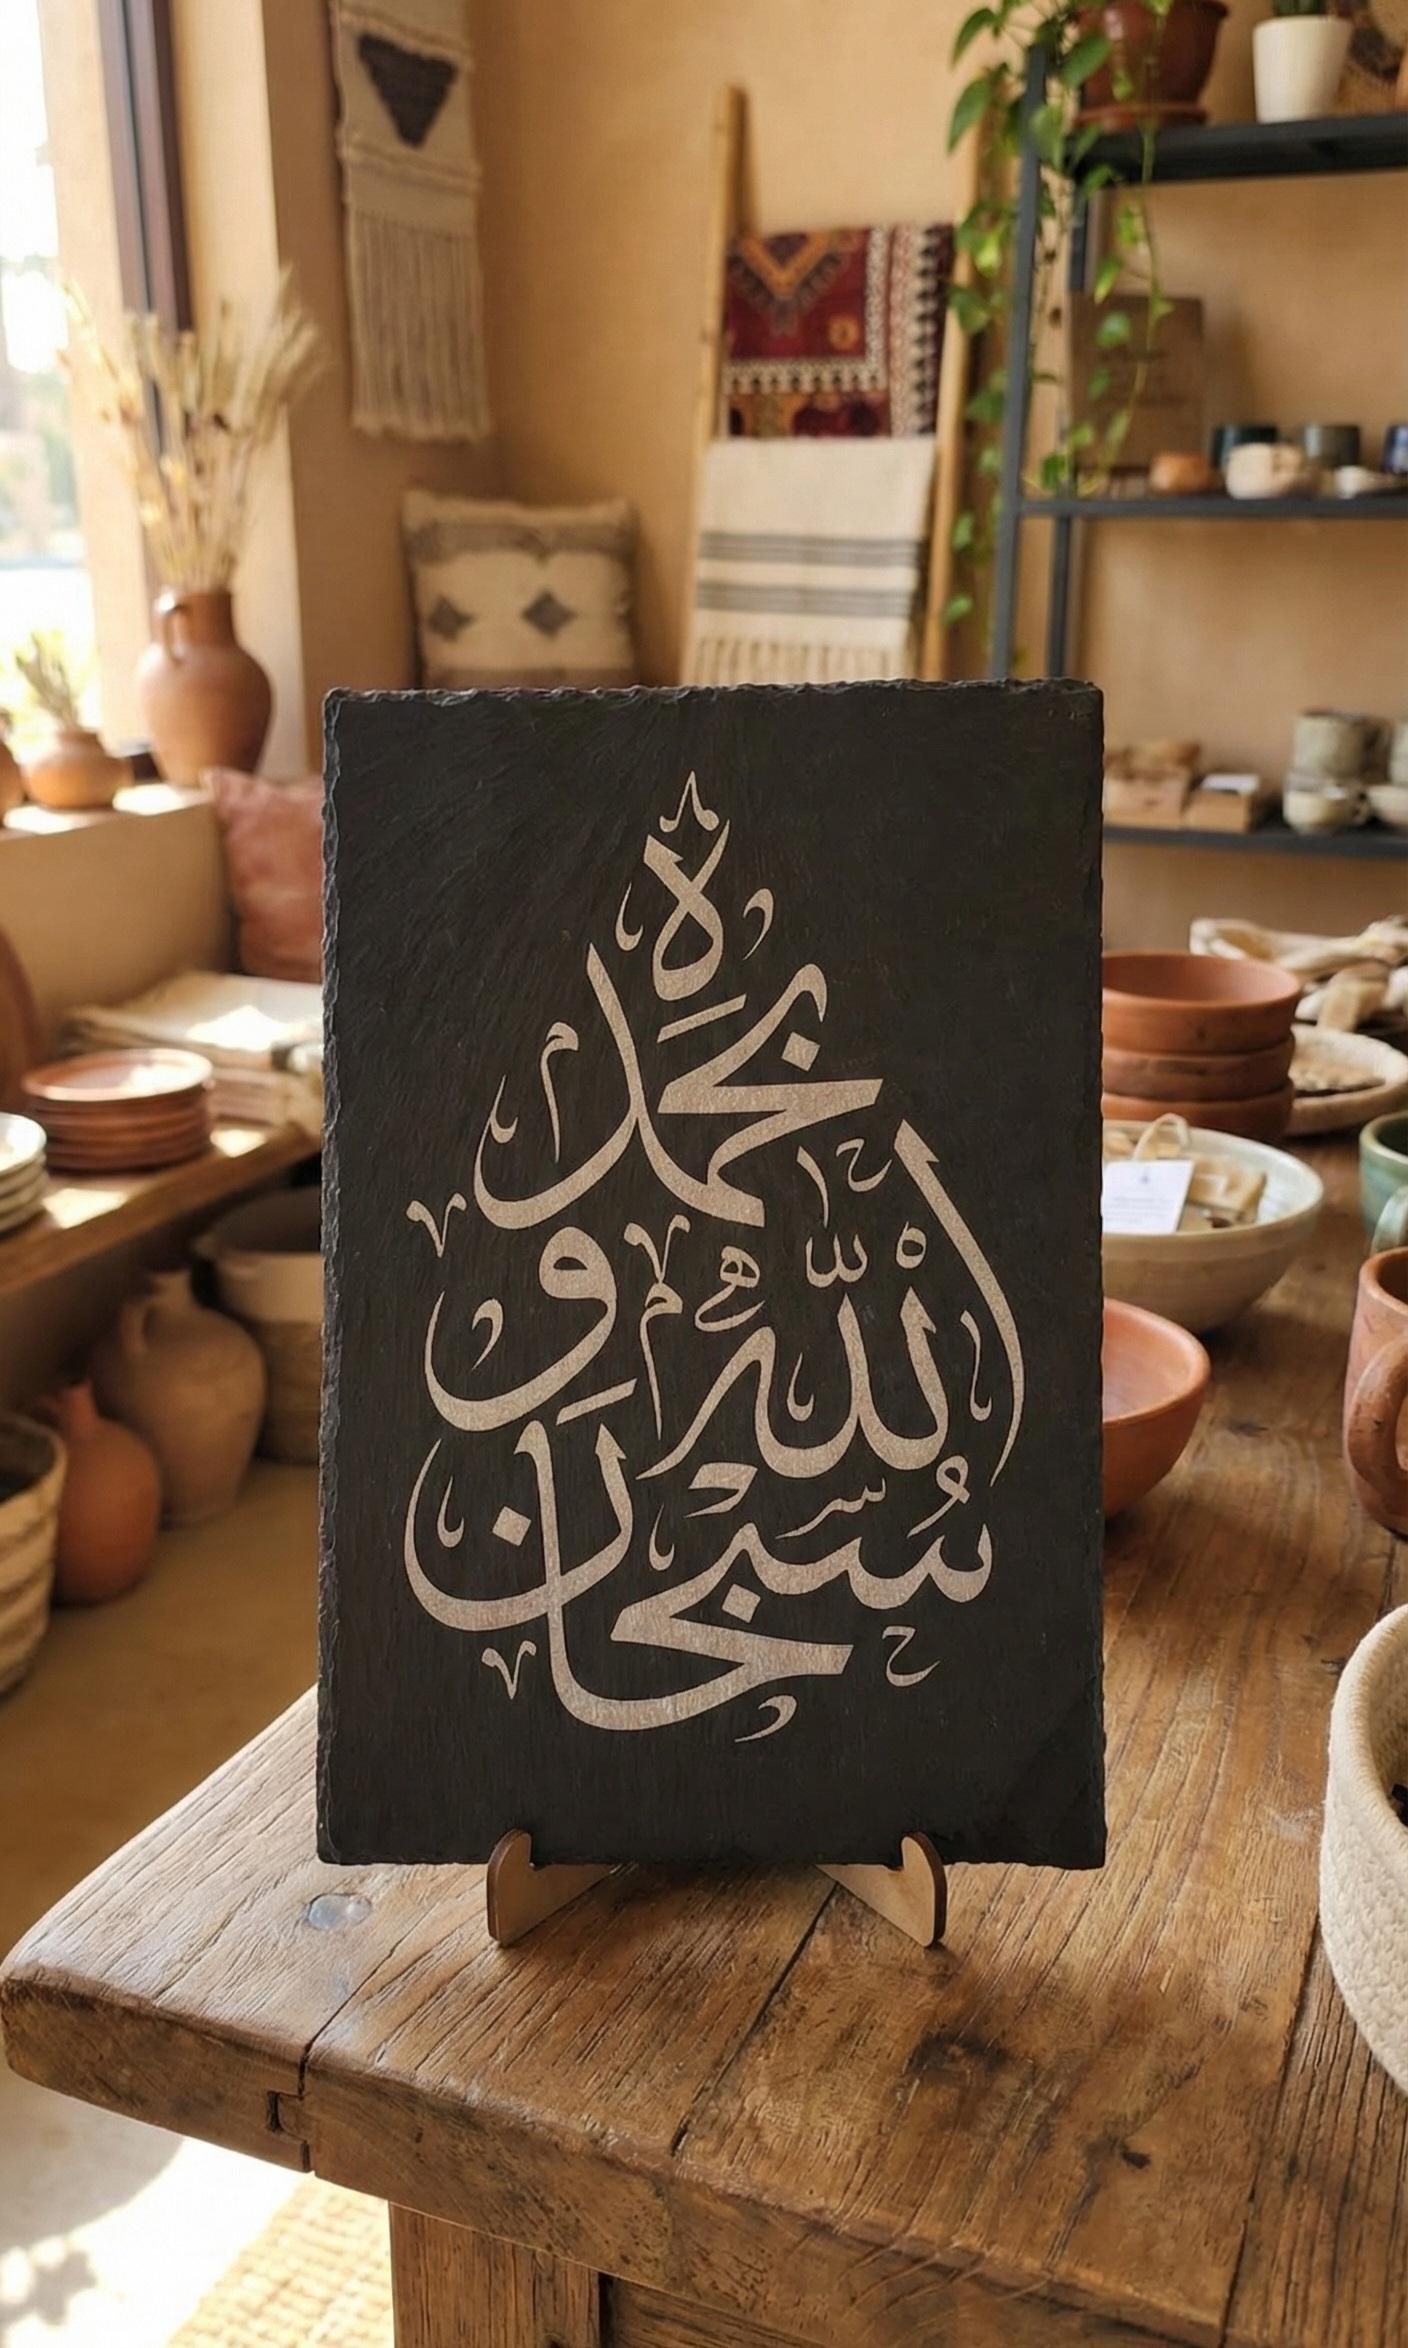 سبحان
الله و
بحمده